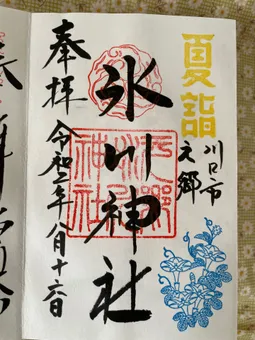 夏詣
川口市
元郷
氷川神社
奉拝
令和二年八月十六日